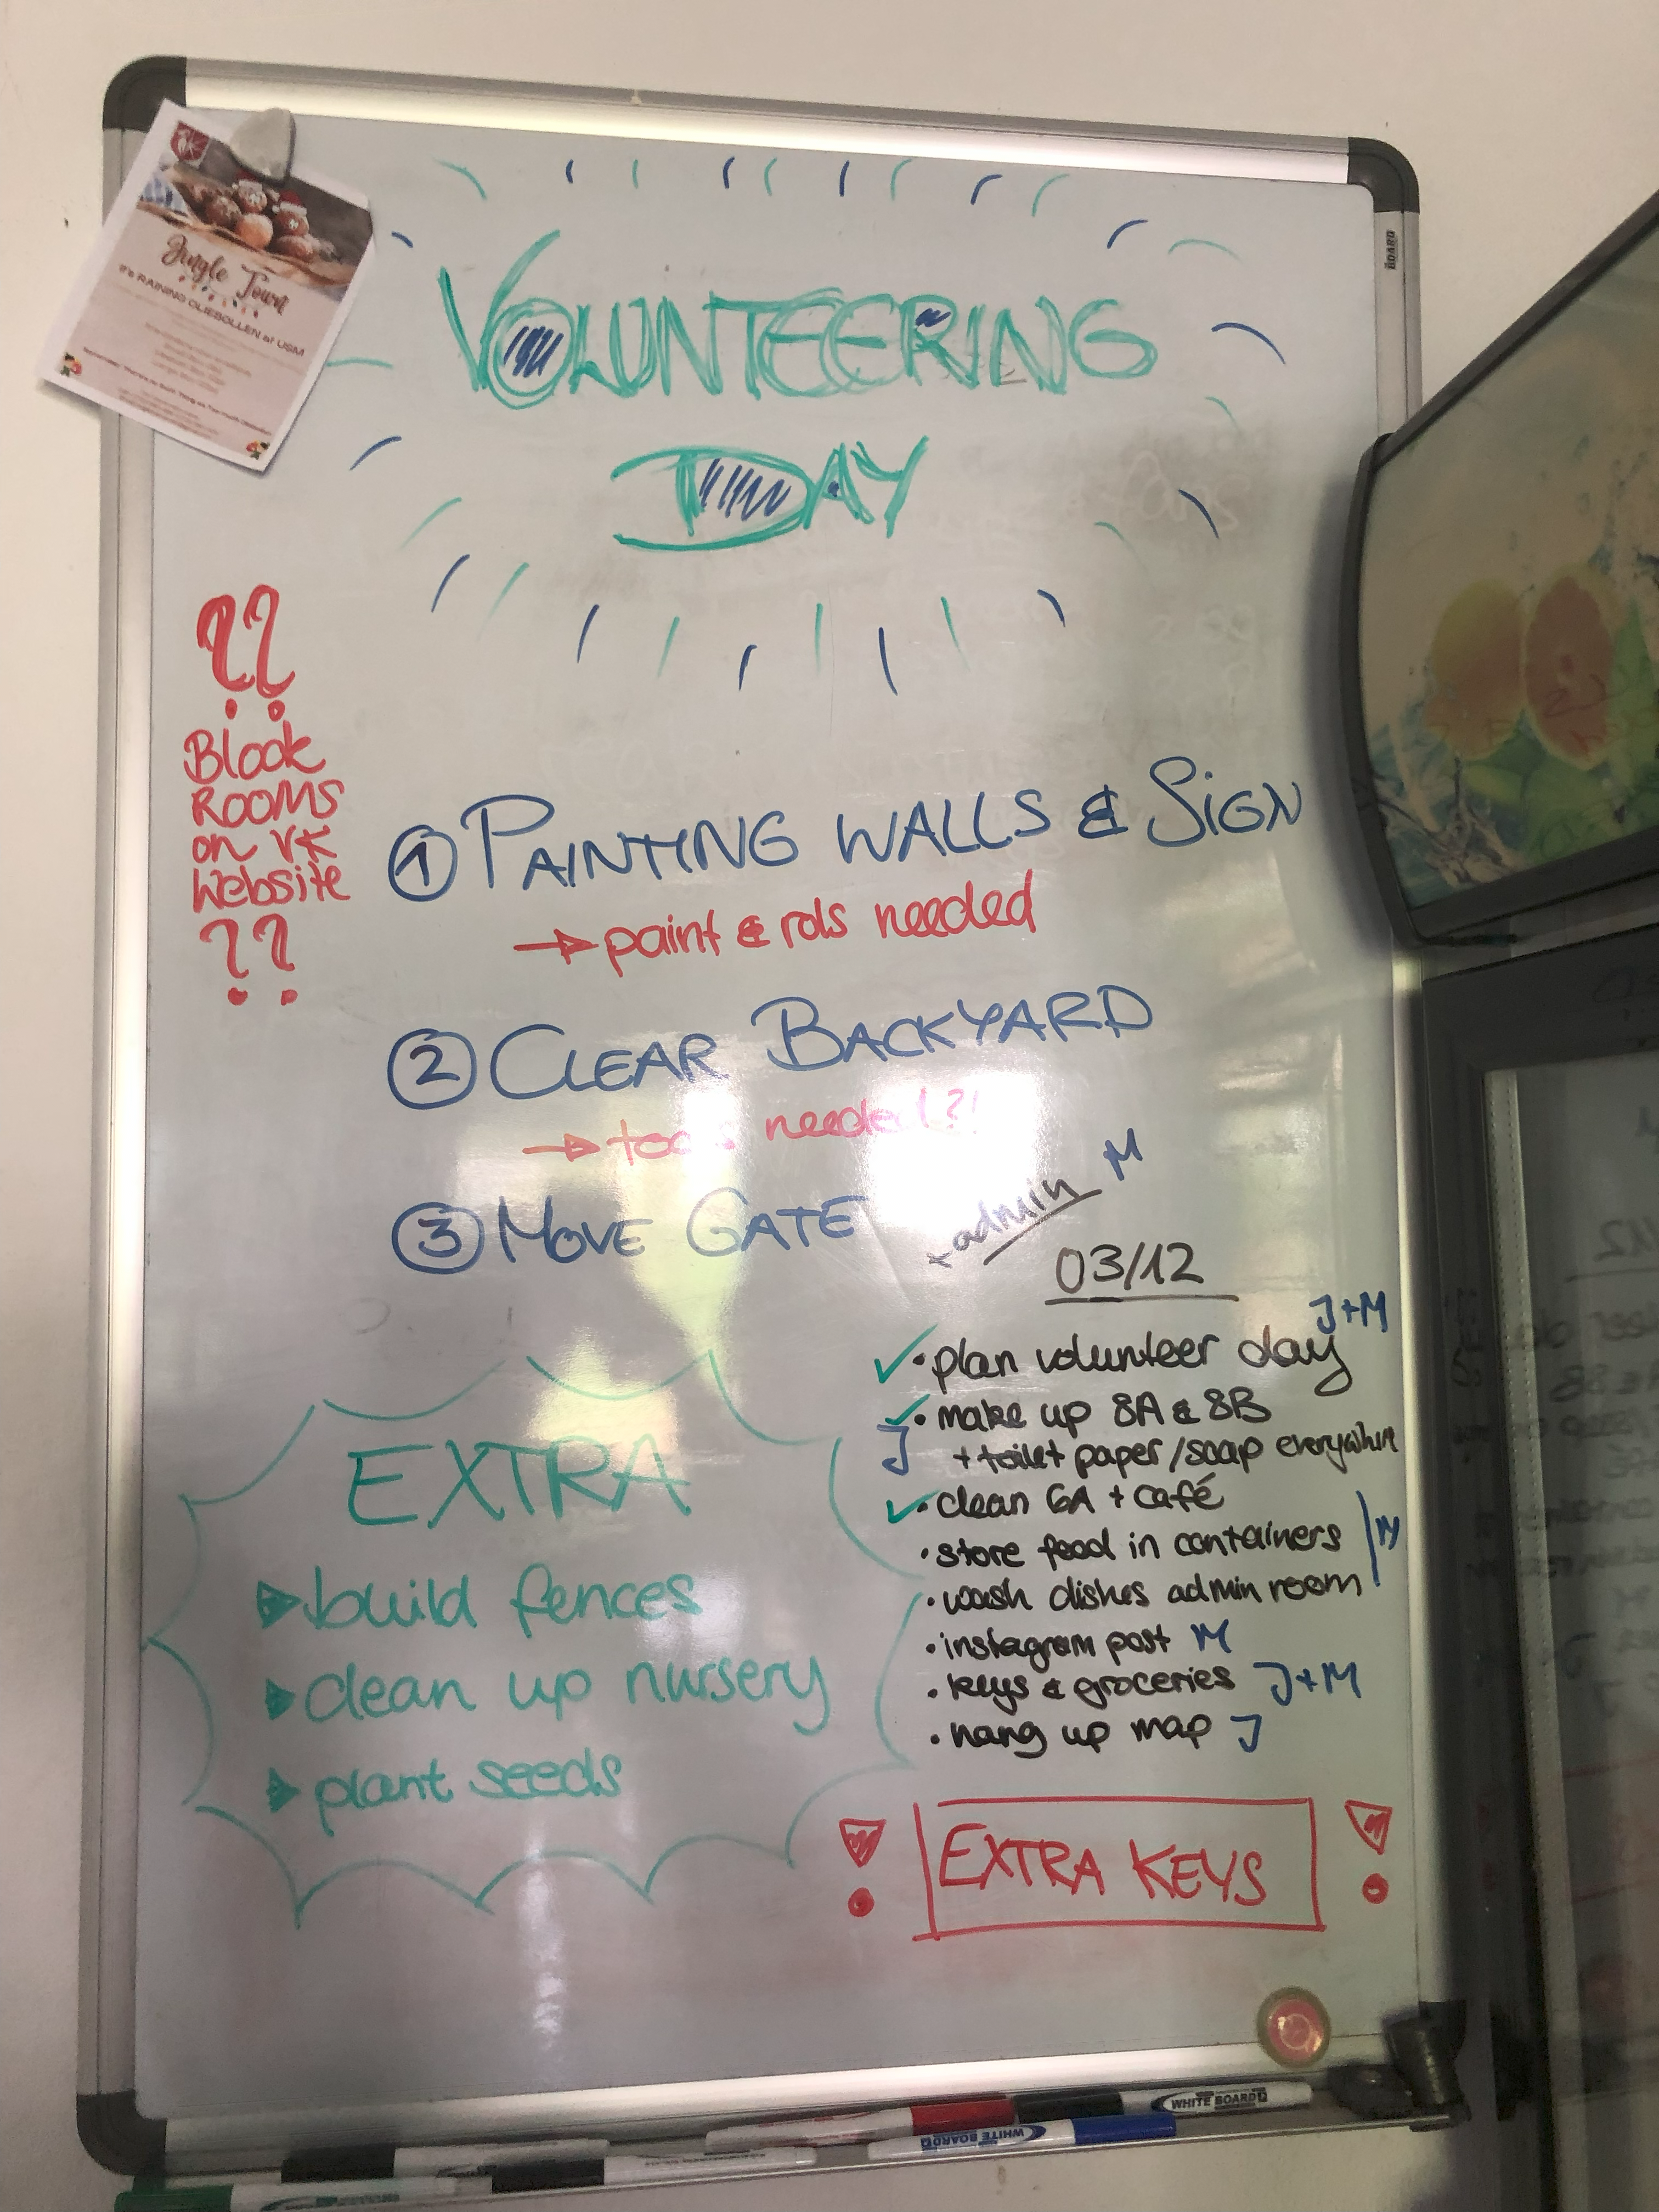 Jingle Town
It's RAINING OLIEBOLLEN at USM
BOARD
VOLUNTEERING
DAY
??
Block
ROOMS
on VK
Website
??
1 PAINTING WALLS & SIGN
→ paint & rols needed
2 CLEAR BACKYARD
→ tools needed?!
3 MOVE GATE
+ admin M
03/12
✓ • plan volunteer day J+M
✓ • make up 8A & 8B
J + toilet paper/soap everywhere
✓ • clean 6A + café
• store food in containers
M
• wash dishes admin room
• instagram post M
• keys & groceries J+M
• hang up map J
EXTRA
▶ build fences
▶ clean up nursery
▶ plant seeds
! EXTRA KEYS !
WHITE BOARD
WHITE BOARD